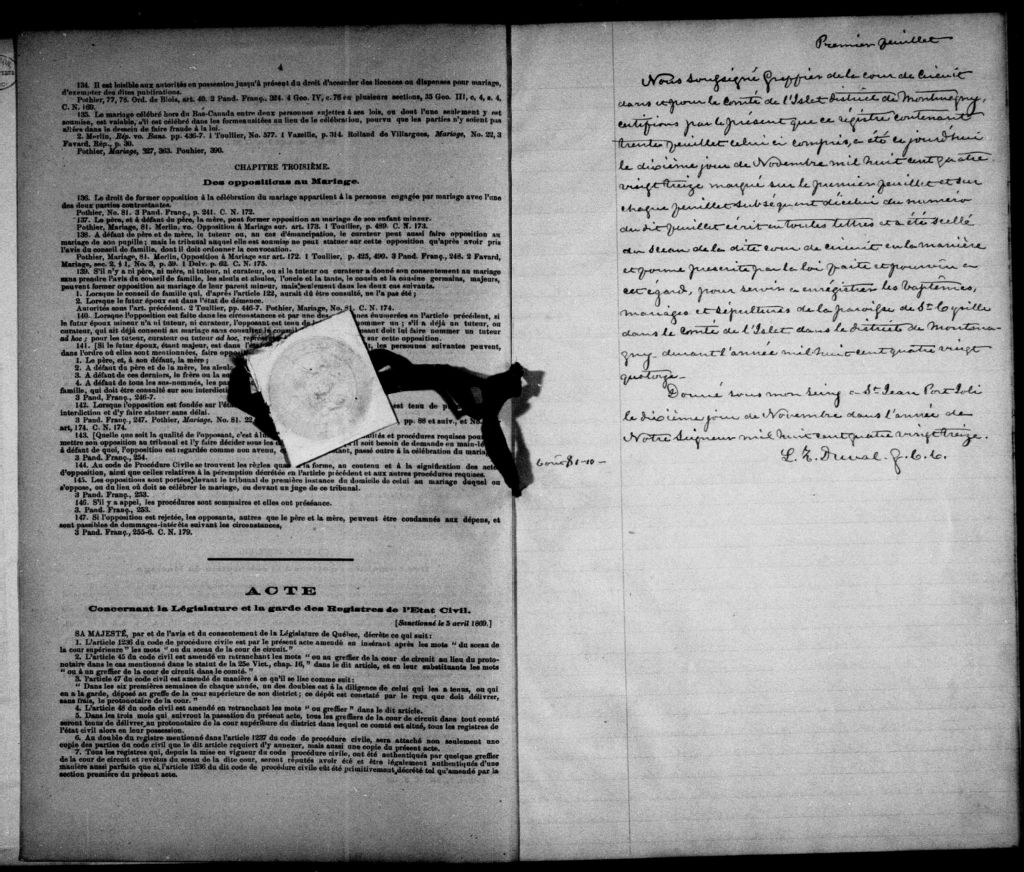 4
134. Il est loisible aux autorités en possession jusqu'à présent du droit d'accorder des licences ou dispenses pour mariage,
d'exempter des dites publications.
Pothier, 77, 78. Ord. de Blois, art. 40. 2 Pand. Franç. 324. 4 Geo. IV, c. 76 en plusieurs sections, 35 Geo. III, c, 4, s. 4,
C. N. 169.
135. Le mariage célébré hors du Bas-Canada entre deux personnes sujettes à ses lois, ou dont l'une seulement y est
soumise, est valable, s'il est célébré dans les formes usitées au lieu de la célébration, pourvu que les parties n'y soient pas
allées dans le dessein de faire fraude à la loi.
2. Merlin, Rép. vo. Bans. pp. 436-7. 1 Toullier, No. 577. 1 Vazeille, p. 314. Rolland de Villargues, Mariage, No. 22, 3
Favard, Rép., p. 30.
Pothier, Mariage, 327, 363. Pouhier, 390.
CHAPITRE TROISIÈME.
Des oppositions au Mariage.
136. Le droit de former opposition à la célébration du mariage appartient à la personne engagée par mariage avec l'une
des deux parties contractantes.
Pothier, No. 81. 3 Pand. Franç., p. 241. C. N. 172.
137. Le père, et à défaut du père, la mère, peut former opposition au mariage de son enfant mineur.
Pothier, Mariage, 81. Merlin, vo. Opposition à Mariage sur. art. 173. 1 Toullier, p. 489. C. N. 173.
138. A défaut de père et de mère, le tuteur ou, au cas d'émancipation, le curateur peut aussi faire opposition au
mariage de son pupille; mais le tribunal auquel elle est soumise ne peut statuer sur cette opposition qu'après avoir pris
l'avis du conseil de famille, dont il doit ordonner la convocation.
Pothier, Mariage, 81. Merlin, Opposition à Mariage sur art. 172. 1 Toullier, p. 425, 490. 3 Pand. Franç., 248. 2 Favard,
Mariage, sec. 2, § 1, No. 3, p. 59. 1 Delv. p. 62. C. N. 175.
139. S'il n'y a ni père, ni mère, ni tuteur, ni curateur, ou si le tuteur ou curateur a donné son consentement au mariage
sans prendre l'avis du conseil de famille, les aïeuls et aïeules, l'oncle et la tante, le cousin et la cousine germains, majeurs,
peuvent former opposition au mariage de leur parent mineur, mais seulement dans les deux cas suivants.
1. Lorsque le conseil de famille qui, d'après l'article 122, aurait dû être consulté, ne l'a pas été ;
2. Lorsque le futur époux est dans l'état de démence.
Autorités sous l'art. précédent. 2 Toullier, pp. 446-7. Pothier, Mariage, No. 81. C. N. 174.
140. Lorsque l'opposition est faite dans les circonstances et par une des personnes énumérées en l'article précédent, si
le futur époux mineur n'a ni tuteur, ni curateur, l'opposant est tenu de nommer un ; s'il a déjà un tuteur, ou
curateur, qui ait déjà consenti au mariage sans consulter le conseil dont lui faire nommer un tuteur
ad hoc ; pour les tuteur, curateur ou tuteur ad hoc, représ sur cette opposition.
141. [Si le futur époux, étant majeur, est dans l' les personnes suivantes peuvent,
dans l'ordre où elles sont mentionnées, faire oppos
1. Le père, et, à son défaut, la mère ;
2. A défaut du père et de la mère, les aïeuls
3. A défaut de ces derniers, le frère ou la sœ
4. A défaut de tous les sus-nommés, les par
famille, qui doit être consulté sur son interdicti
3 Pand. Franç., 246-7.
142. Lorsque l'opposition est fondée sur l'éta est tenu de p
interdiction et d'y faire statuer sans délai.
3 Pand. Franç., 247. Pothier, Mariage, No. 81. 22 pp. 88 et suiv., et No.
art, 174. C. N. 174.
143. [Quelle que soit la qualité de l'opposant, c'est à l ités et procédures requises pour
mettre son opposition au tribunal et l'y faire décider soit besoin de demande en main-le
à défaut de quoi, l'opposition est regardée comme non avenu, tant, passé outre à la célébration du maria
3 Pand. Franç., 254.
144. Au Code de Procédure Civile se trouvent les règles quan la forme, au contenu et à la signification des acte
d'opposition, ainsi que celles relatives à la péremption décrétée en l'article précédent et aux autres procédures requises.
145. Les oppositions sont portées devant le tribunal de première instance du domicile de celui au mariage duquel on
s'oppose, ou du lieu où doit se célébrer le mariage, ou devant un juge de ce tribunal.
3 Pand. Franç., 253.
146. S'il y a appel, les procédures sont sommaires et elles ont préséance.
3. Pand. Franç., 253.
147. Si l'opposition est rejetée, les opposants, autres que le père et la mère, peuvent être condamnés aux dépens, et
sont passibles de dommages-intérêts suivant les circonstances,
3 Pand. Franç., 255-6. C. N. 179.
ACTE
Concernant la Législature et la garde des Registres de l'Etat Civil.
[Sanctionné le 5 avril 1869.]
SA MAJESTÉ, par et de l'avis et du consentement de la Législature de Québec, décrète ce qui suit :
1. L'article 1236 du code de procédure civile est par le présent acte amendé en insérant après les mots " du sceau de
la cour supérieure " les mots " ou du sceau de la cour de circuit."
2. L'article 45 du code civil est amendé en retranchant les mots " ou au greffier de la cour de circuit au lieu du proto-
notaire dans le cas mentionné dans le statut de la 25e Vict., chap. 16," dans le dit article, et en leur substituant les mots
" ou à un greffier de la cour de circuit dans le comté."
3. l'article 47 du code civil est amendé de manière à ce qu'il se lise comme suit :
" Dans les six premières semaines de chaque année, un des doubles est à la diligence de celui qui les a tenus, ou qui
en a la garde, déposé au greffe de la cour supérieure de son district ; ce dépôt est constaté par le reçu que doit délivrer,
sans frais, le protonotaire de la cour."
4. L'article 48 du code civil est amendé en retranchant les mots " ou greffier " dans le dit article.
5. Dans les trois mois qui suivront la passation du présent acte, tous les greffiers de la cour de circuit dans tout comté
seront tenus de délivrer au protonotaire de la cour supérieure du district dans lequel ce comté est situé, tous les registres de
l'état civil alors en leur possession.
6. Au double du registre mentionné dans l'article 1237 du code de procédure civile, sera attaché non seulement une
copie des parties du code civil que le dit article requiert d'y annexer, mais aussi une copie du présent acte.
7. Tous les registres qui, depuis la mise en vigueur du code procédure civile, ont été authentiqués par quelque greffier
de la cour de circuit et revêtus du sceau de la dite cour, seront réputés avoir été et être légalement authentiqués d'une
manière aussi parfaite que si l'article 1236 du dit code de procédure civile eût été primitivement décrété tel qu'amendé par la
section première du présent acte.
Premier feuillet
Nous soussigné Greffier de la cour de Circuit
dans et pour le Comté de l'Islet district de Montmagny,
certifions par le présent que ce registre contenant
trente feuillet celui ci compris, a été ce jourd'hui
le dixième jour de Novembre mil huit cent quatre
vingt treize marqué sur le premier feuillet et sur
chaque feuillet subsequent d'icelui du numéro
du dit feuillet écrit en toutes lettres et a été scellé
du sceau de la dite cour de circuit en la manière
et forme prescrite par la loi faite et pourvue a
cet egard, pour servir a enregistrer les baptèmes,
mariages et sépultures de la paroisse de St Cyrille
dans le Comté de l'Islet dans le district de Montma-
gny, durant l'année mil huit cent quatre vingt
quatorze.
Donné sous mon seing a St Jean Port Joli
le dixième jour de Novembre dans l'année de
Notre Seigneur mil huit cent quatre vingt treize.
L. Z. Duval. G. C. C.